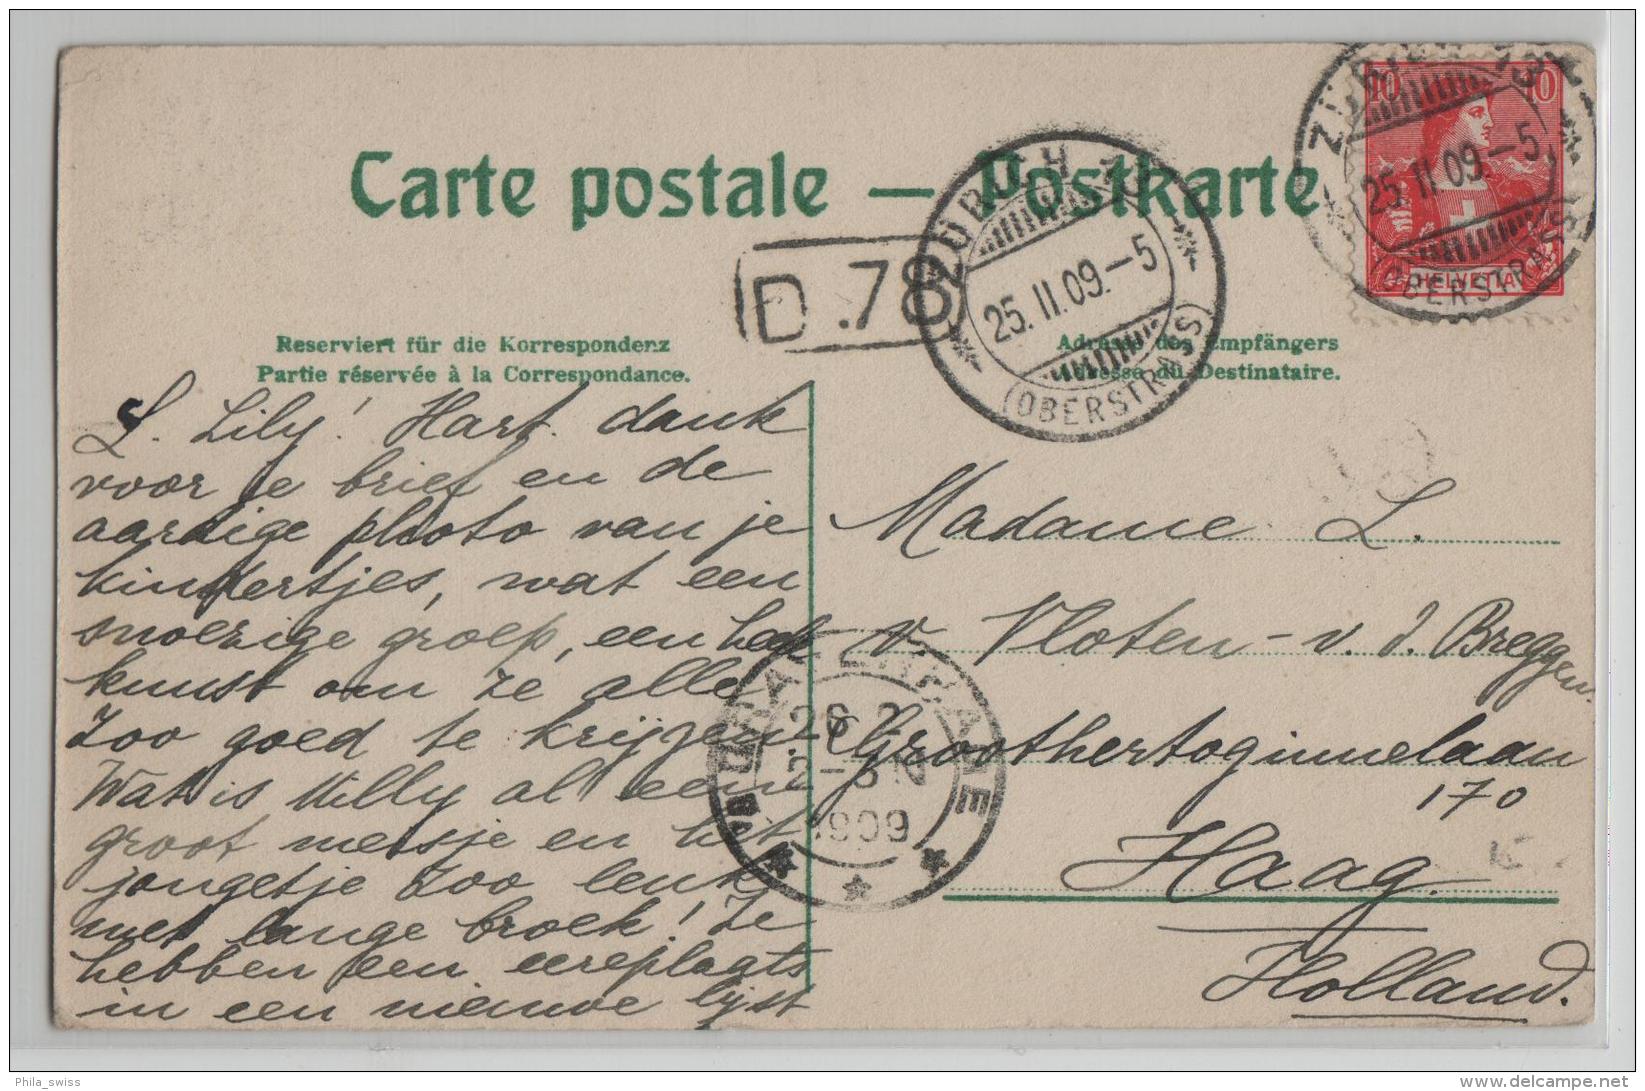 Carte postale — Postkarte
10 10
HELVETIA
ZÜRICH 13
25. II. 09. – 5
(OBERSTRASS)
ZÜRICH 13
25. II. 09. – 5
(OBERSTRASS)
D.78
Reserviert für die Korrespondenz
Partie réservée à la Correspondance.
Adresse des Empfängers
Adresse du Destinataire.
L. Lily! Hart. dank
voor je brief en de
aardige photo van je
kindertjes, wat een
snoezige groep, een heel
kunst om ze alle
zoo goed te krijgen.
Wat is Willy al een
groot meisje en het
jongetje zoo leuk
met lange broek! Ze
hebben een eereplaats
in een nieuwe lijst
Madame L.
v. Vloten – v. d. Breggen
Groothertoginnelaan
170
Haag.
Holland.
'S GRAVENHAGE
26 2
3-5 N
1909
Phila_swiss
delcampe.net